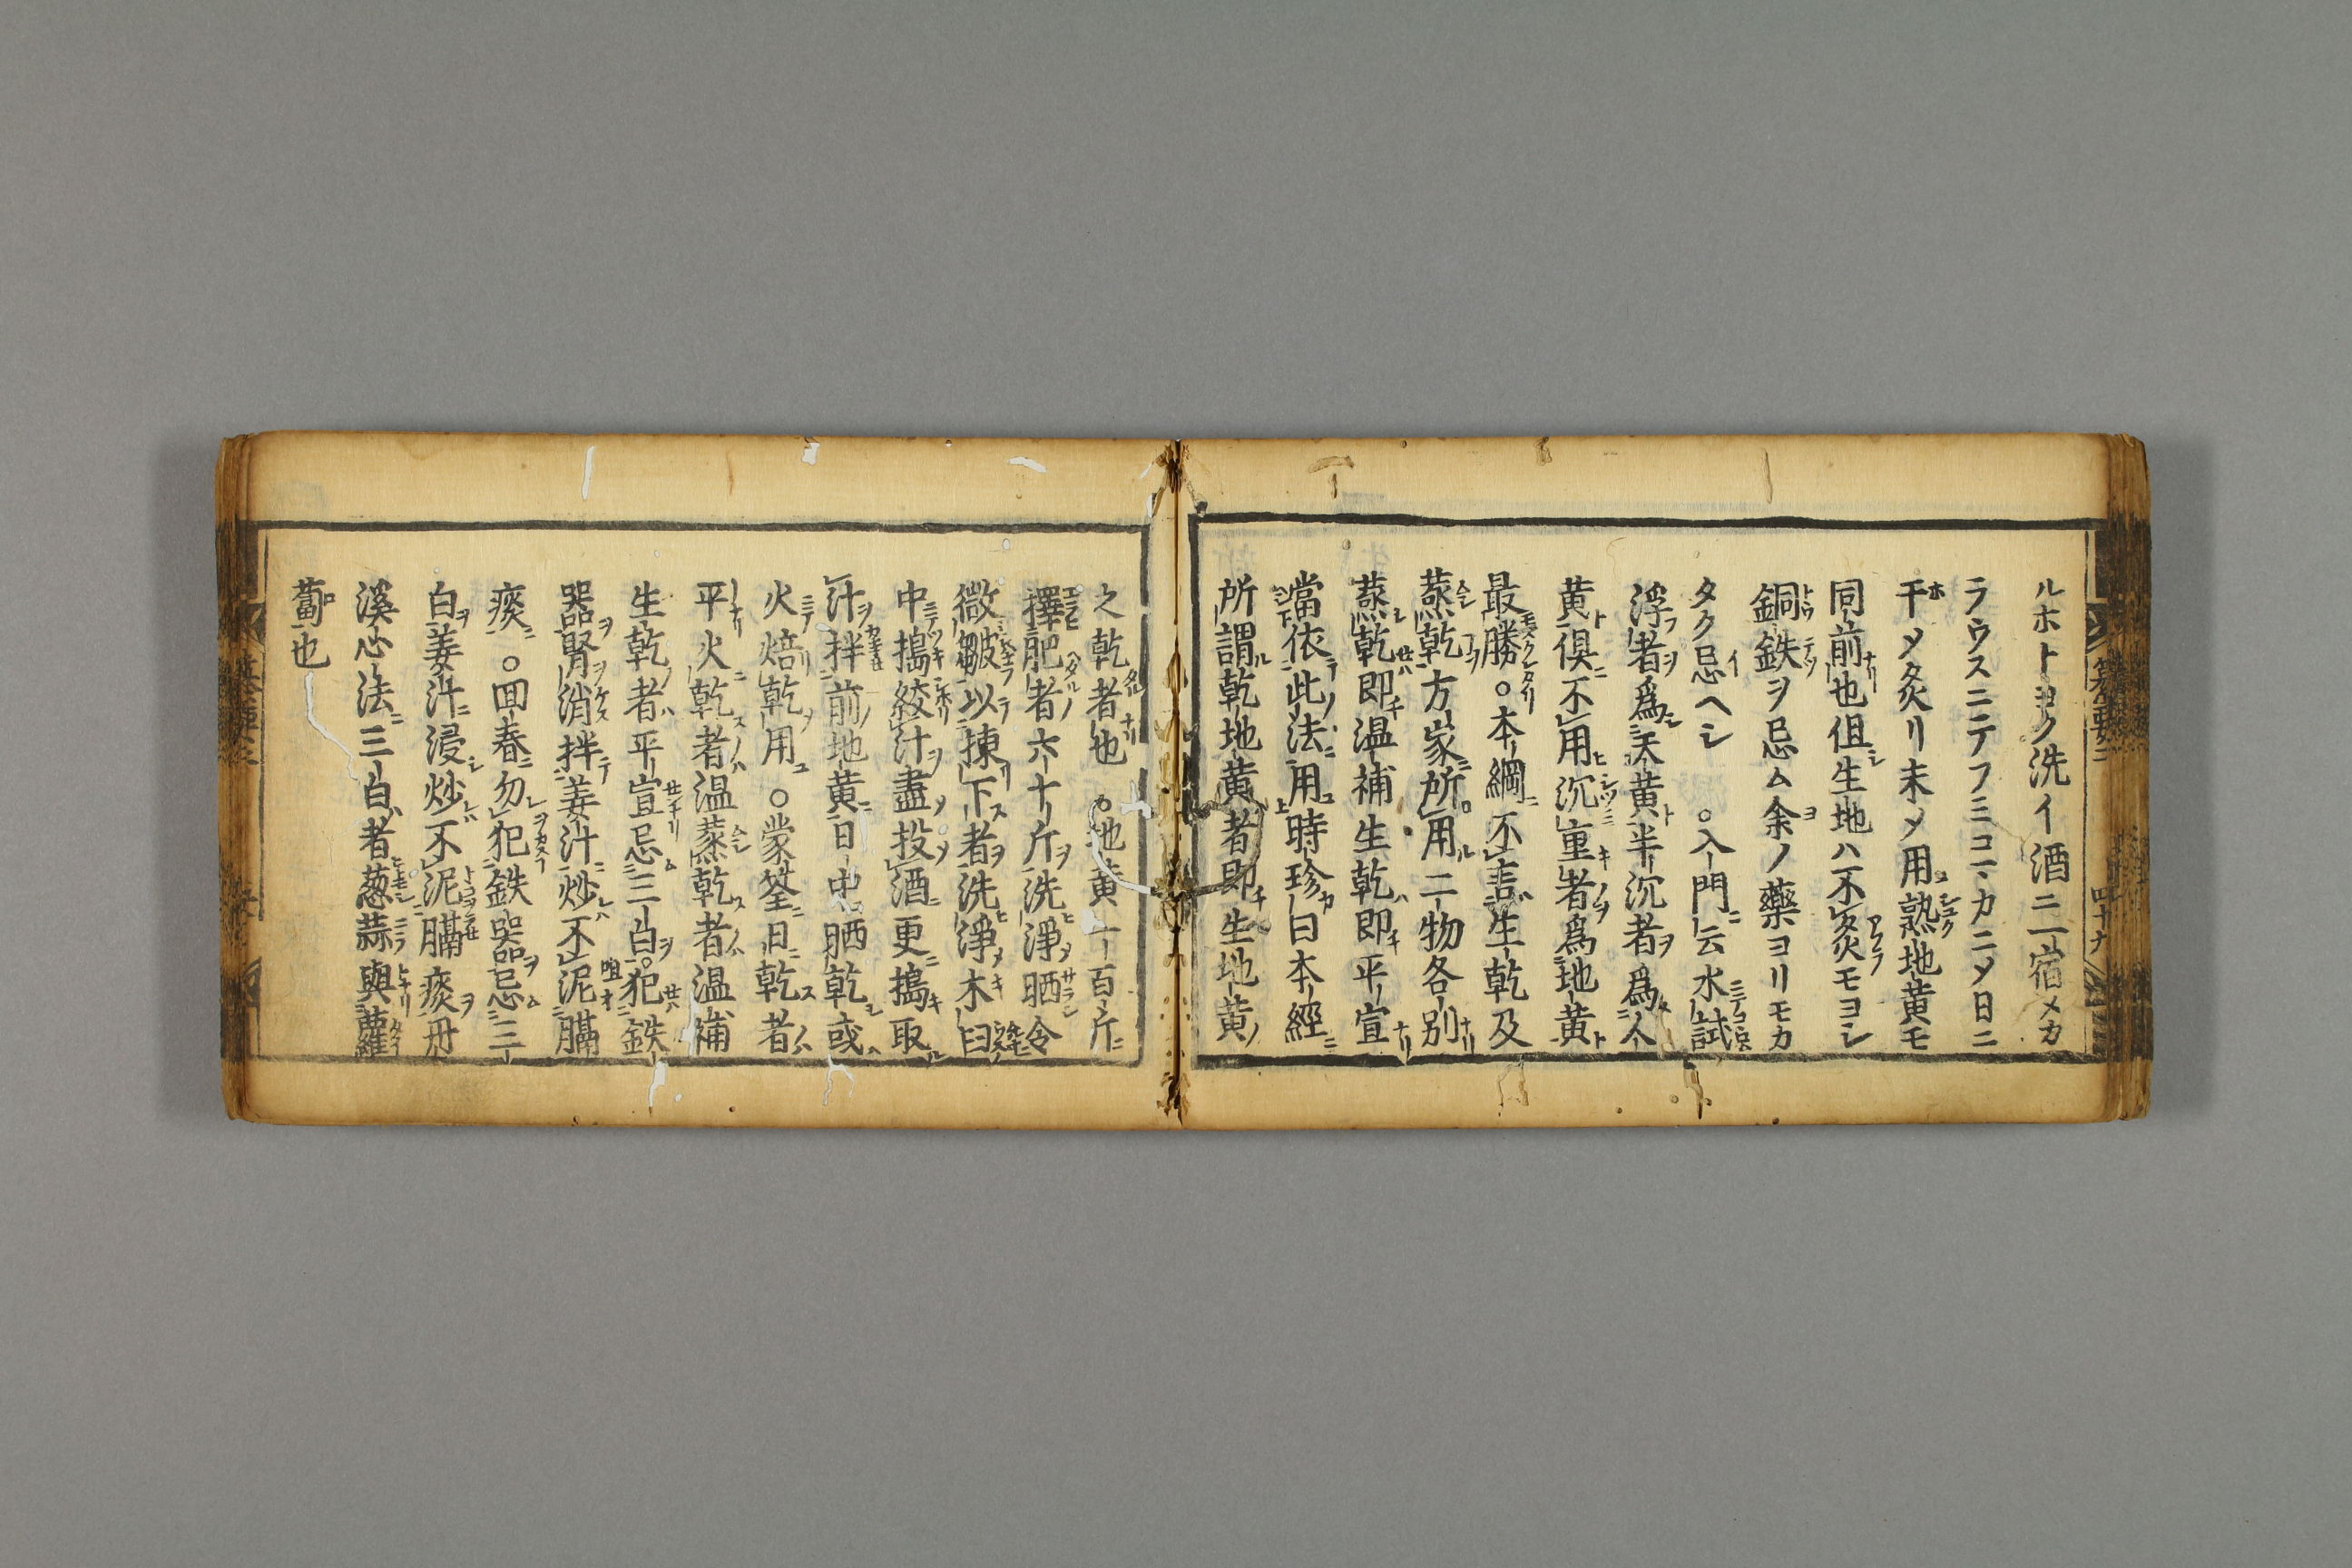 ルホトヨク洗イ酒ニ一宿メカ
ラウスニテフミコマカニメ日ニ
干メ炙リ末メ用熟地黄モ
同前也但生地ハ不炙モヨシ
銅鉄ヲ忌ム余ノ藥ヨリモカ
タク忌ヘシ ○入門云水試
浮者爲天黄半沉者爲人
黄俱不用沉重者爲地黄
最勝○本綱不言生乾及
蒸乾方家所用二物各別
蒸乾即温補生乾即平宣
當依此法用時珍曰本經
所謂乾地黄者即生地黄
之乾者也 ○地黄一百斤
擇肥者六十斤洗淨晒令
微皺以揀下者洗淨木臼
中搗絞汁盡投酒更搗取
汁拌前地黄日中晒乾或
火焙乾用 ○蒙筌日乾者
平火乾者温蒸乾者温補
生乾者平宣忌三白犯鉄
器腎消拌姜汁炒不泥膈
痰 ○回春勿犯鉄器忌三
白姜汁浸炒不泥膈痰丹
溪心法三白者葱蒜與蘿
蔔也